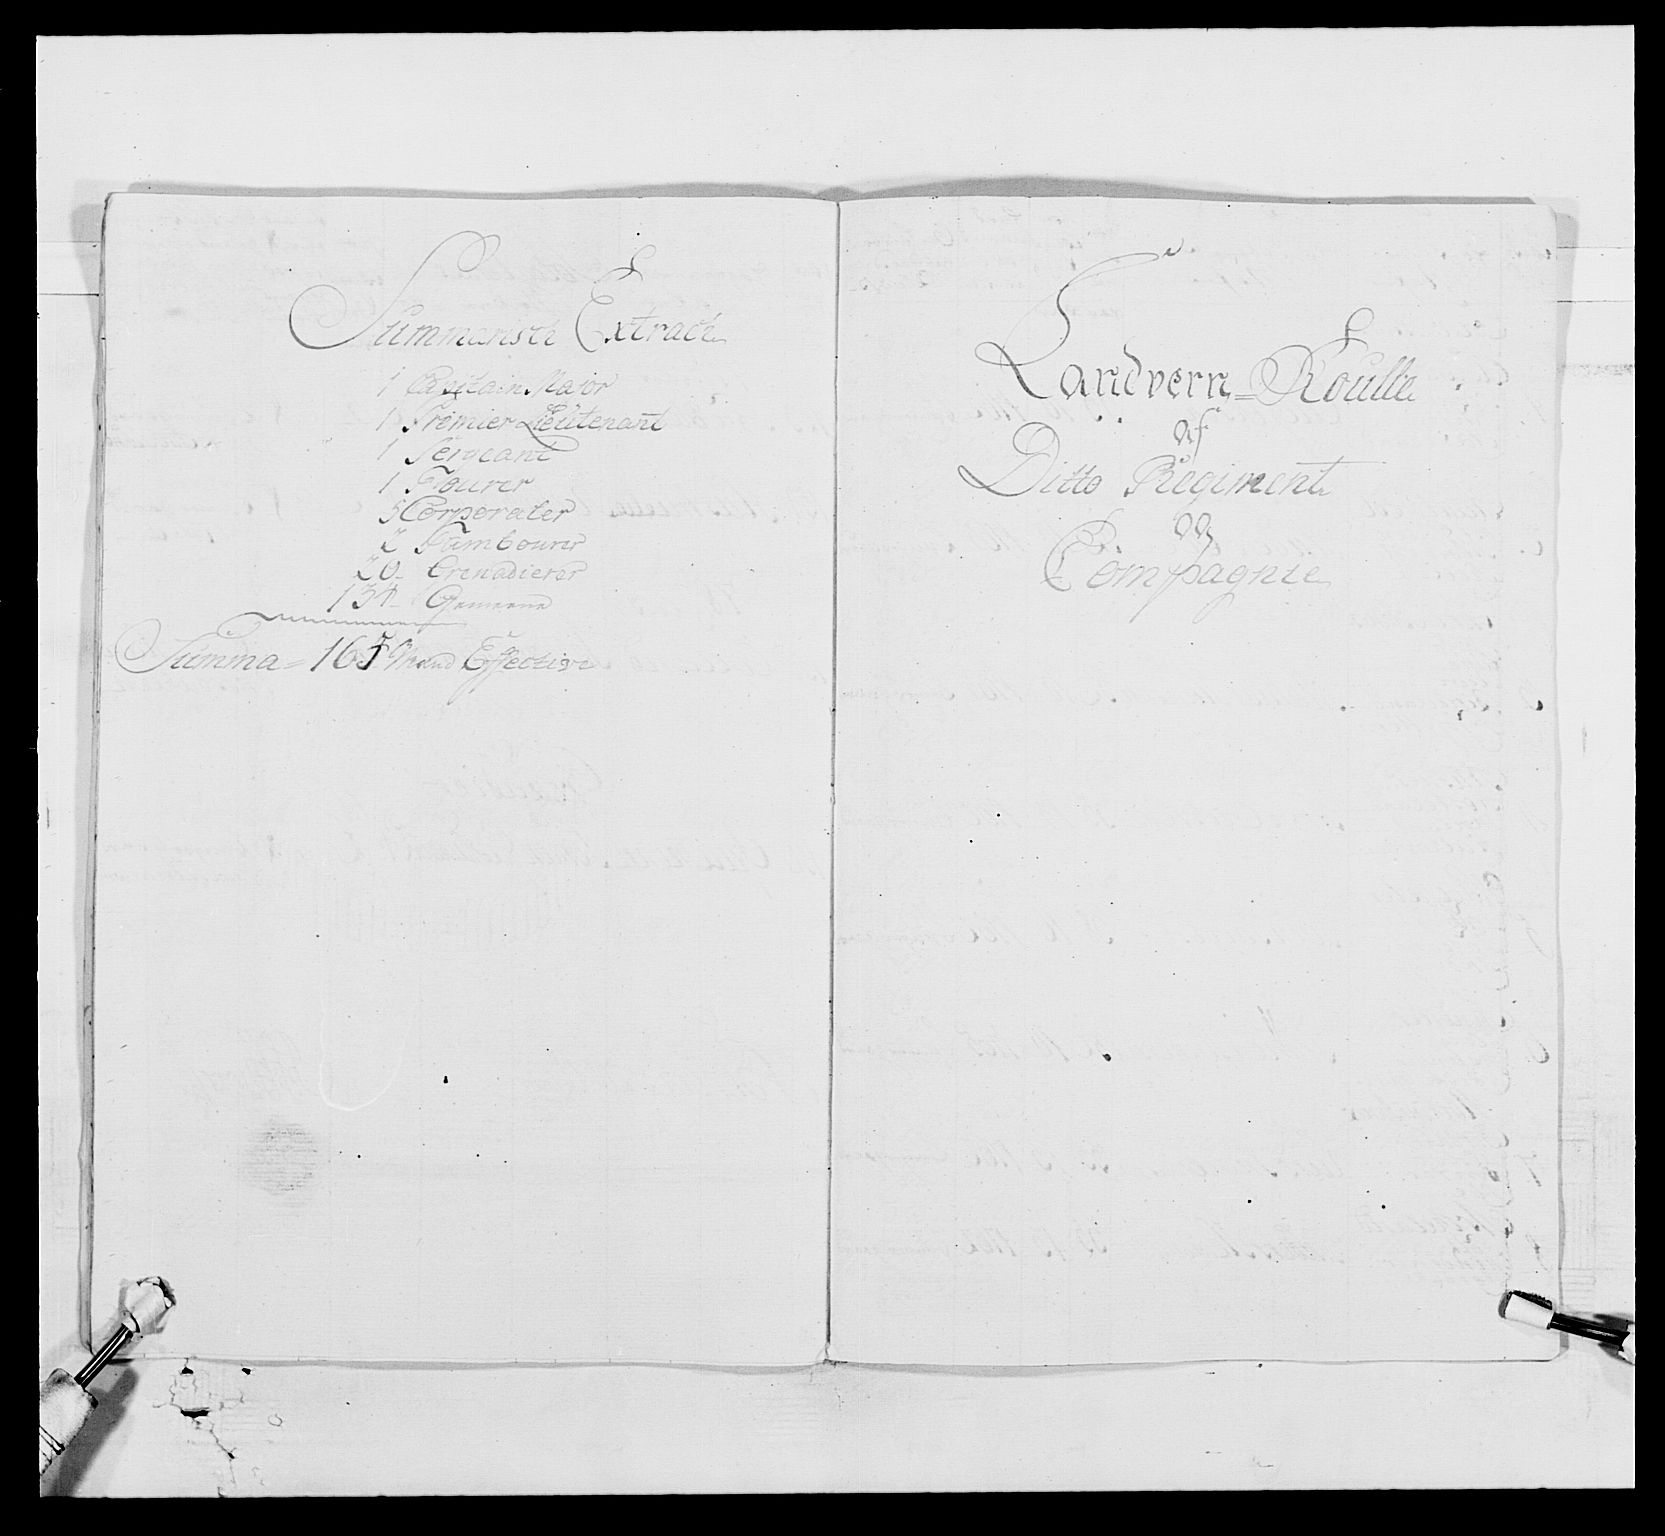 Summarisch Extract
1 Capitain Major
1 Premier Lieutenant
1 Sergeant
1 Fourer
5 Corporaler
2 Tambourer
20 Grenadierer
134 Gemeene
Summa = 165 Mand Effective
Landvern-Roulle
af
Ditto Regiment
og
Compagnie